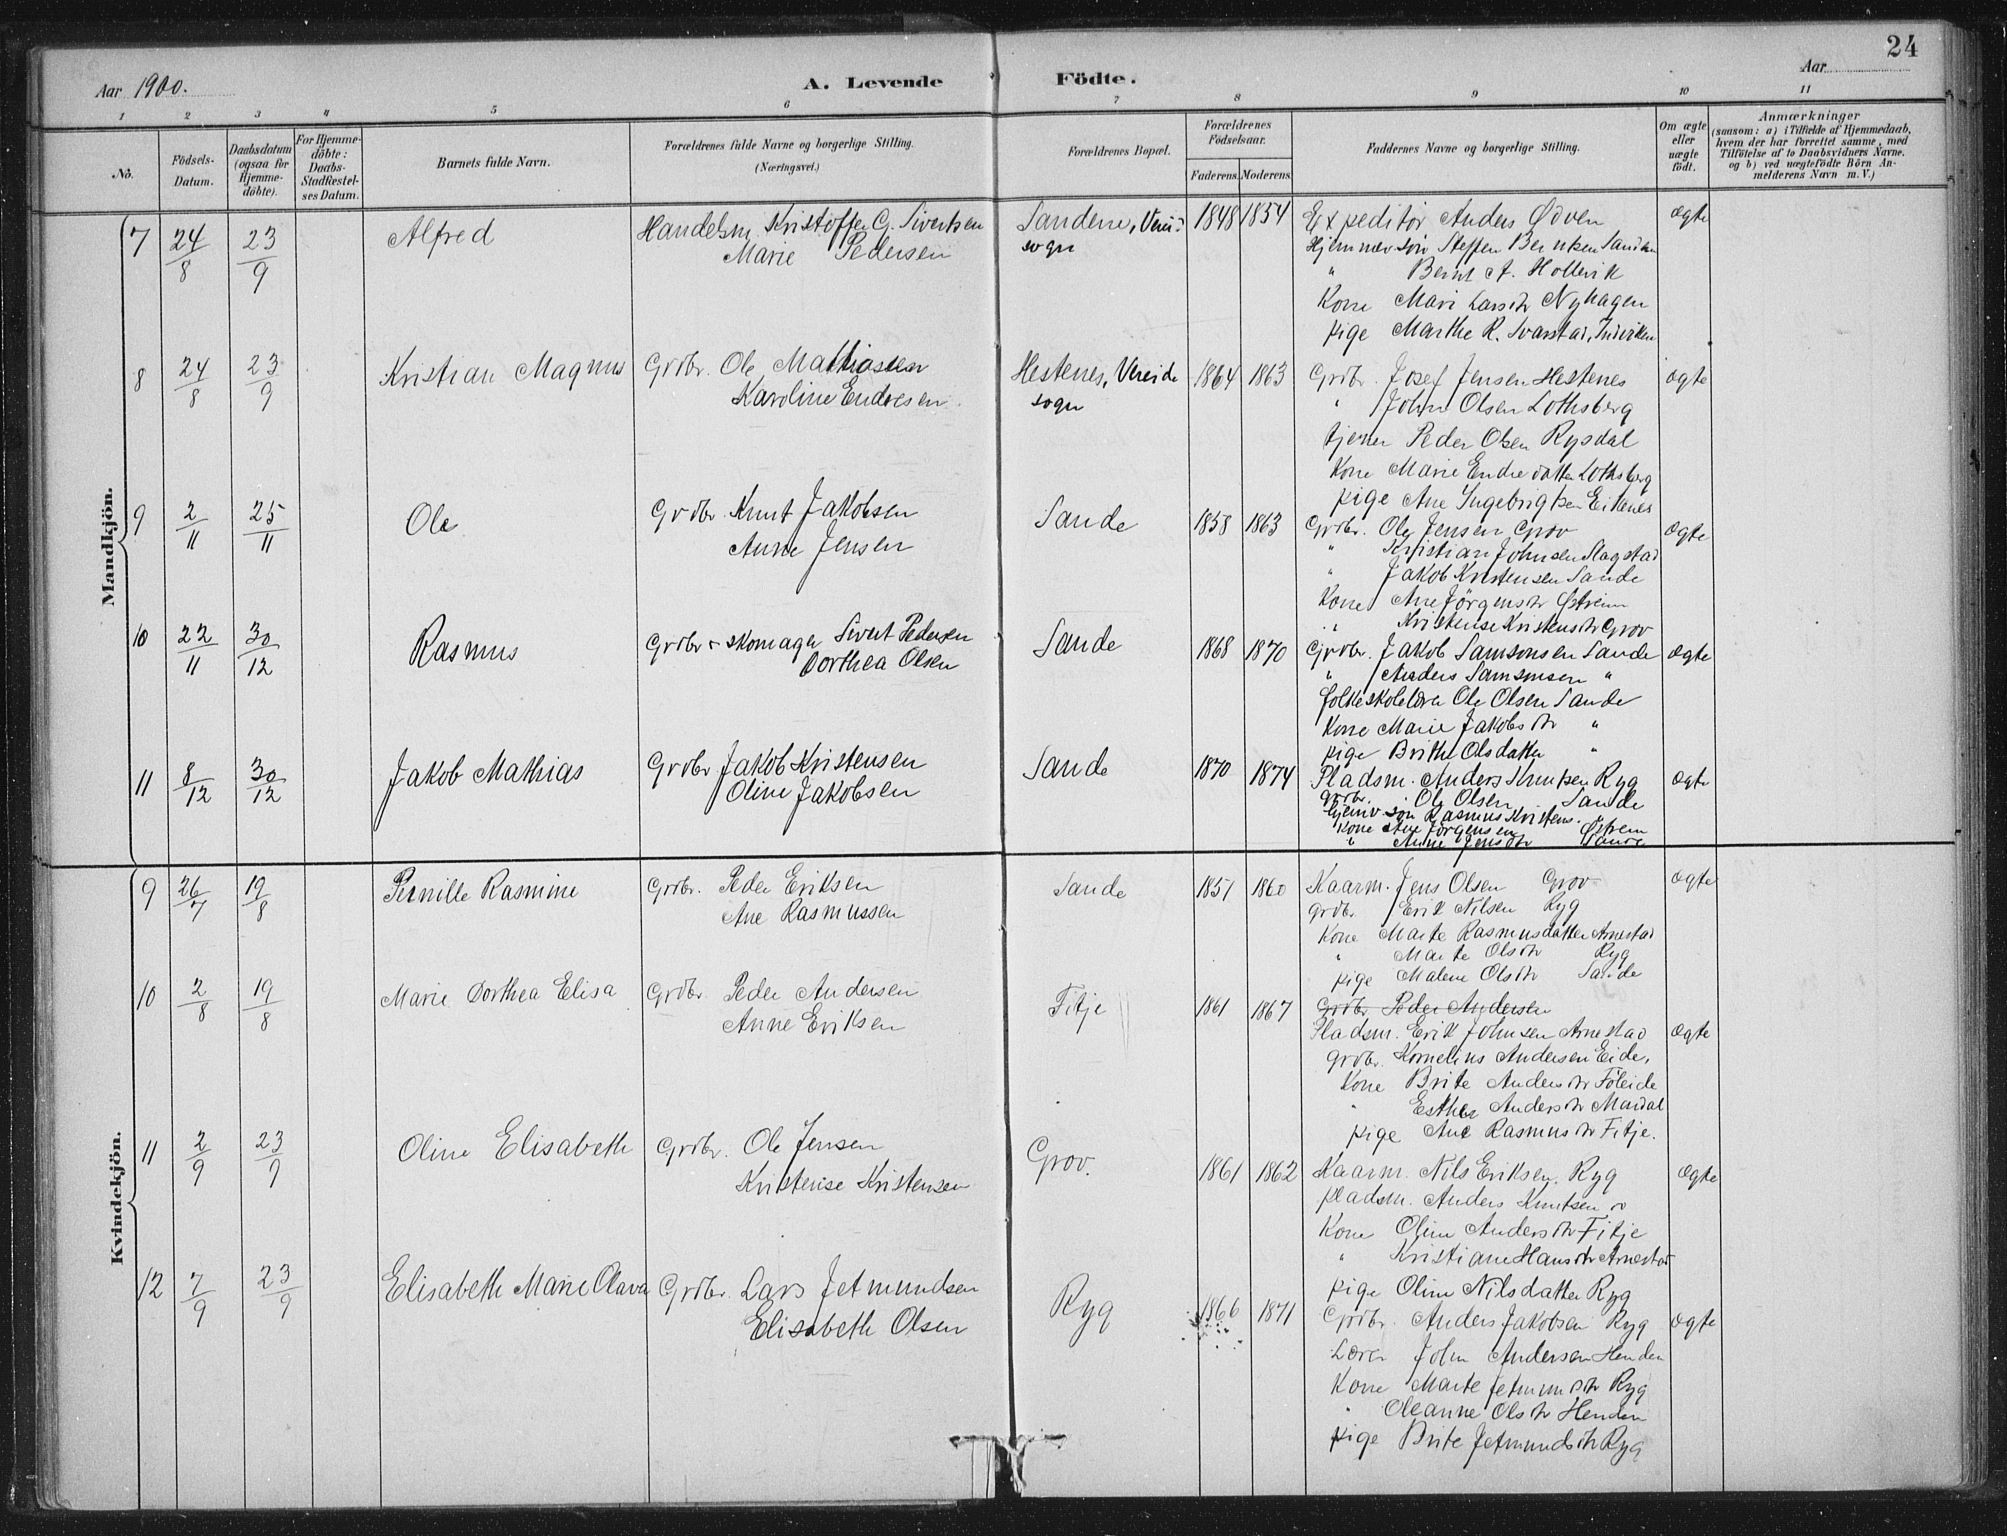 24
Aar 1900.
A. Levende Födte.
Aar
1 2 3 4 5 6 7 8 9 10 11
No.
Födsels-Datum.
Daabsdatum (ogsaa for Hjemmedöbte).
For Hjemmedöbte: Daabs-Stadfestelses Datum.
Barnets fulde Navn.
Forældrenes fulde Navne og borgerlige Stilling. (Næringsvei.)
Forældrenes Bopæl.
Forældrenes Födselsaar.
Faderens. Moderens.
Faddernes Navne og borgerlige Stilling.
Om ægte eller uægte födt.
Anmærkninger
(saasom: a) i Tilfælde af Hjemmedaab, hvem der har forrettet samme, med Tilföielse af to Daabsvidners Navne. og b) ved uægtefödte Börn Anmelderens Navn m. V.)
Mandkjön.
7 24/8 23/9 Alfred Handelsm. Kristoffer G. Sivertsen Sandene, 1848 1854 Expeditör Anders Ødven ægte
Marie Pedersen sogn
Steffen
" Bernt A.
Kone Mari Larsdtr Nyhagen
pige Marthe R.
8 24/8 23/9 Kristian Magnus Grdbr. Ole Mathiassen Hestenes, Vereide 1864 1863 Grdbr. Josef Jensen Hestenes ægte
Karoline Endresen sogn
" John Olsen Lothsberg
tjener Peder Olsen Rygsdal
Kone Marie Endredatter Lothsberg
pige Ane Eikenes
9 2/11 25/11 Ole Grdbr. Knut Jakobsen Sande 1858 1863 Grdbr. Ole Jensen Grov ægte
Anne Jensen
" Kristian Johnsen Slagstad
" Jakob Kristensen Sande
Kone Ane Jörgensdtr Østrem
" Kristense Kristensdtr Grov
10 22/11 30/12 Rasmus Grdbr & skomager Sivert Pedersen Sande 1868 1870 Grdbr. Jakob Samsonsen Sande ægte
Dorthea Olsen
" Anders Samsonsen "
folkeskolelærer Ole Olsen Sande
Kone Marie Jakobsdtr "
pige Brithe Olsdatter "
11 8/12 30/12 Jakob Mathias Grdbr Jakob Kristensen Sande 1870 1874 Pladsm. Anders Knutsen Ryg ægte
Oline Jakobsen
Grdbr. Ole Olsen Sande
Hjemv. sön Rasmus Kristens.
Kone Ane Jörgensen Østrem
" Anne Jensdtr Sande
Kvindekjön.
9 26/7 19/8 Pernille Rasmine Grdbr. Peder Eriksen Sande 1851 1860 Kaarm. Jens Olsen Grov ægte
Ane Rasmussen
Grdbr Erik Nilsen Ryg
Kone Marte Rasmusdatter Arnestad
" Marte Olsdtr Ryg
pige Malene Olsdtr Sande
10 2/8 19/8 Marie Dorthea Elisa Grdbr. Peder Andersen Fitje 1861 1867 Grdbr Peder Andersen
Anne Eriksen
Pladsm. Erik Johnsen Arnestad ægte
Grdbr. Kornelius Andersen Eide.
Kone Brite Andersdtr Föleide
" Esther Andersdtr Mardal
pige Ane Rasmusdtr Fitje.
11 2/9 23/9 Oline Elisabeth Grdbr. Ole Jensen Grov. 1861 1862 Kaarm. Nils Eriksen Ryg ægte
Kristense Kristensen
pladsm. Anders Knutsen "
Kone Oline Andersdtr Fitje
" Kristiane Hansdtr Arnestad
pige Oline Nilsdatter Ryg
12 7/9 23/9 Elisabeth Marie Olava Grdbr. Lars Jetmundsen Ryg 1866 1871 Grdbr. Anders Jakobsen Ryg ægte
Elisabeth Olsen
Lærer John Andersen Henden
Kone Marte Jetmundsdtr Ryg
" Oleanne Olsdtr Henden
pige Brite Jetmundsdtr Ryg